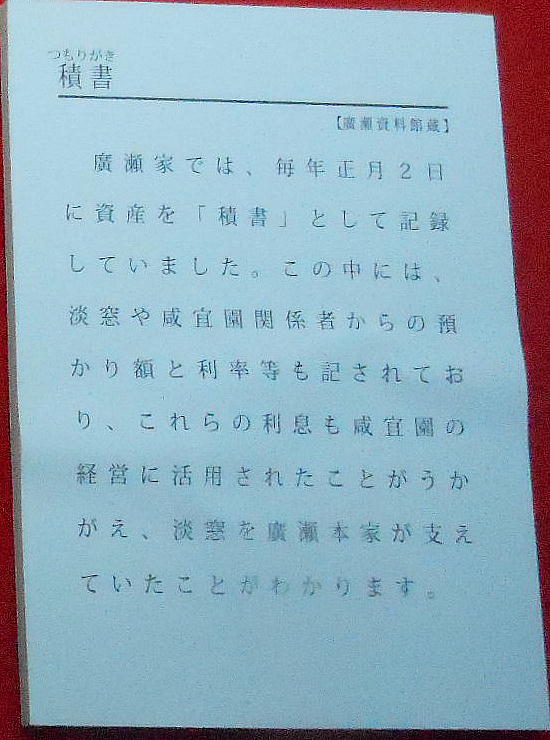 つもりがき
積書
【廣瀬資料館蔵】
廣瀬家では、毎年正月２日
に資産を「積書」として記録
していました。この中には、
淡窓や咸宜園関係者からの預
かり額と利率等も記されてお
り、これらの利息も咸宜園の
経営に活用されたことがうか
がえ、淡窓を廣瀬本家が支え
ていたことがわかります。